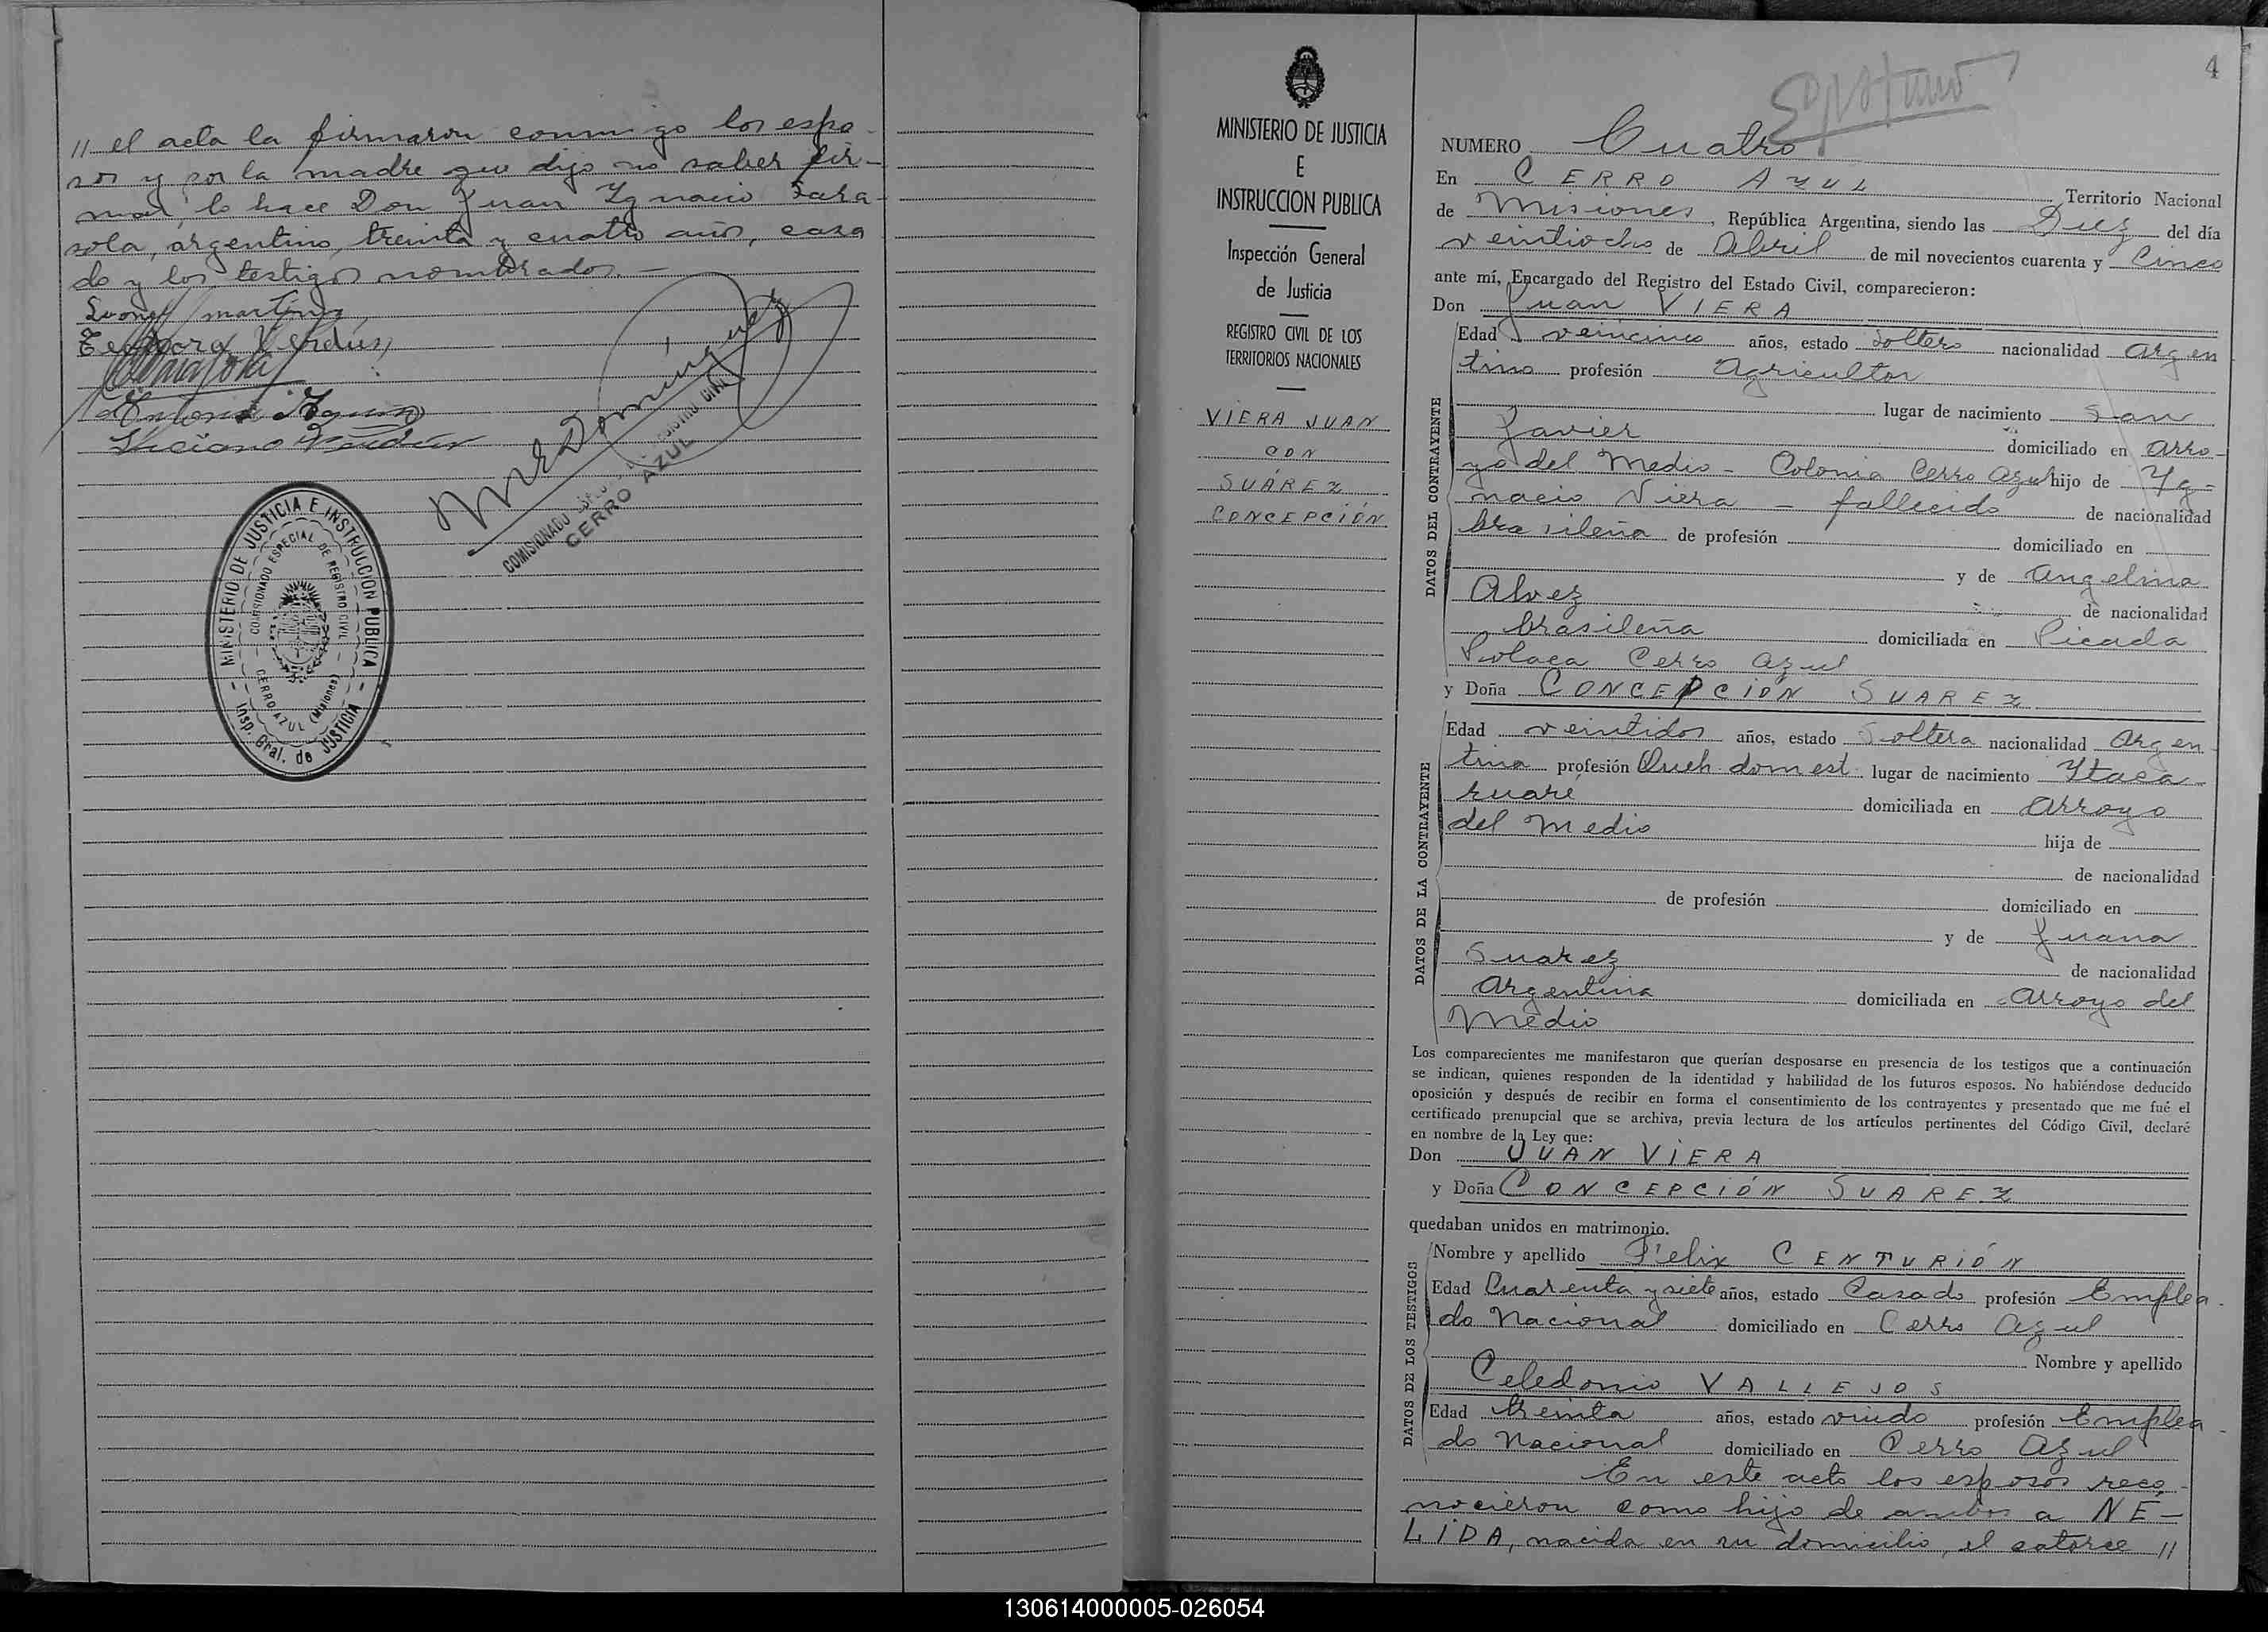 // el acta la firmaron conmigo los espo-
sos y por la madre que dijo no saber fir-
mar, lo hace Don Juan Ygnacio Sara-
sola, argentino, treinta y cuatro años, casa
do y los testigos nombrados.—
Leonel Martínez
Teodora Verdún
Antonio
Luciano Verdún
M E Domínguez
COMISIONADO ESPECIAL REGISTRO CIVIL
CERRO AZUL
MINISTERIO DE JUSTICIA E INSTRUCCION PUBLICA
COMISIONADO ESPECIAL DE REGISTRO CIVIL
CERRO AZUL (Misiones)
Insp. Gral. de JUSTICIA
MINISTERIO DE JUSTICIA
E
INSTRUCCION PUBLICA
Inspección General
de Justicia
REGISTRO CIVIL DE LOS
TERRITORIOS NACIONALES
VIERA JUAN
CON
SUÁREZ
CONCEPCIÓN
4
NUMERO Cuatro
En CERRO AZUL Territorio Nacional
de Misiones, República Argentina, siendo las Diez del día
veintiocho de Abril de mil novecientos cuarenta y Cinco
ante mí, Encargado del Registro del Estado Civil, comparecieron:
Don Juan VIERA
DATOS DEL CONTRAYENTE
Edad veincinco años, estado Soltero nacionalidad Argen
tino profesión Agricultor
lugar de nacimiento San
Javier domiciliado en Arro-
yo del Medio - Colonia Cerro Azul hijo de Yg-
nacio Viera - fallecido de nacionalidad
brasileña de profesión domiciliado en
y de Angelina
Alvez de nacionalidad
brasileña domiciliada en Picada
Polaca Cerro Azul
y Doña CONCEPCIÓN SUAREZ
DATOS DE LA CONTRAYENTE
Edad veintidos años, estado Soltera nacionalidad Argen-
tina profesión Queh. domest. lugar de nacimiento Ytaca-
ruaré domiciliada en Arroyo
del Medio hija de
de nacionalidad
de profesión domiciliado en
y de Juana
Suarez de nacionalidad
Argentina domiciliada en Arroyo del
Medio
Los comparecientes me manifestaron que querían desposarse en presencia de los testigos que a continuación
se indican, quienes responden de la identidad y habilidad de los futuros esposos. No habiéndose deducido
oposición y después de recibir en forma el consentimiento de los contrayentes y presentado que me fué el
certificado prenupcial que se archiva, previa lectura de los artículos pertinentes del Código Civil, declaré
en nombre de la Ley que:
Don JUAN VIERA
y Doña CONCEPCIÓN SUAREZ
quedaban unidos en matrimonio.
DATOS DE LOS TESTIGOS
Nombre y apellido Felix CENTURIÓN
Edad Cuarenta y siete años, estado Casado profesión Emplea-
do Nacional domiciliado en Cerro Azul
Nombre y apellido
Celedonio VALLEJOS
Edad treinta años, estado viudo profesión Emplea-
do Nacional domiciliado en Cerro Azul
En este acto los esposos reco-
nocieron como hijo de ambos a NE-
LIDA, nacida en su domicilio, el catorce //
130614000005-026054